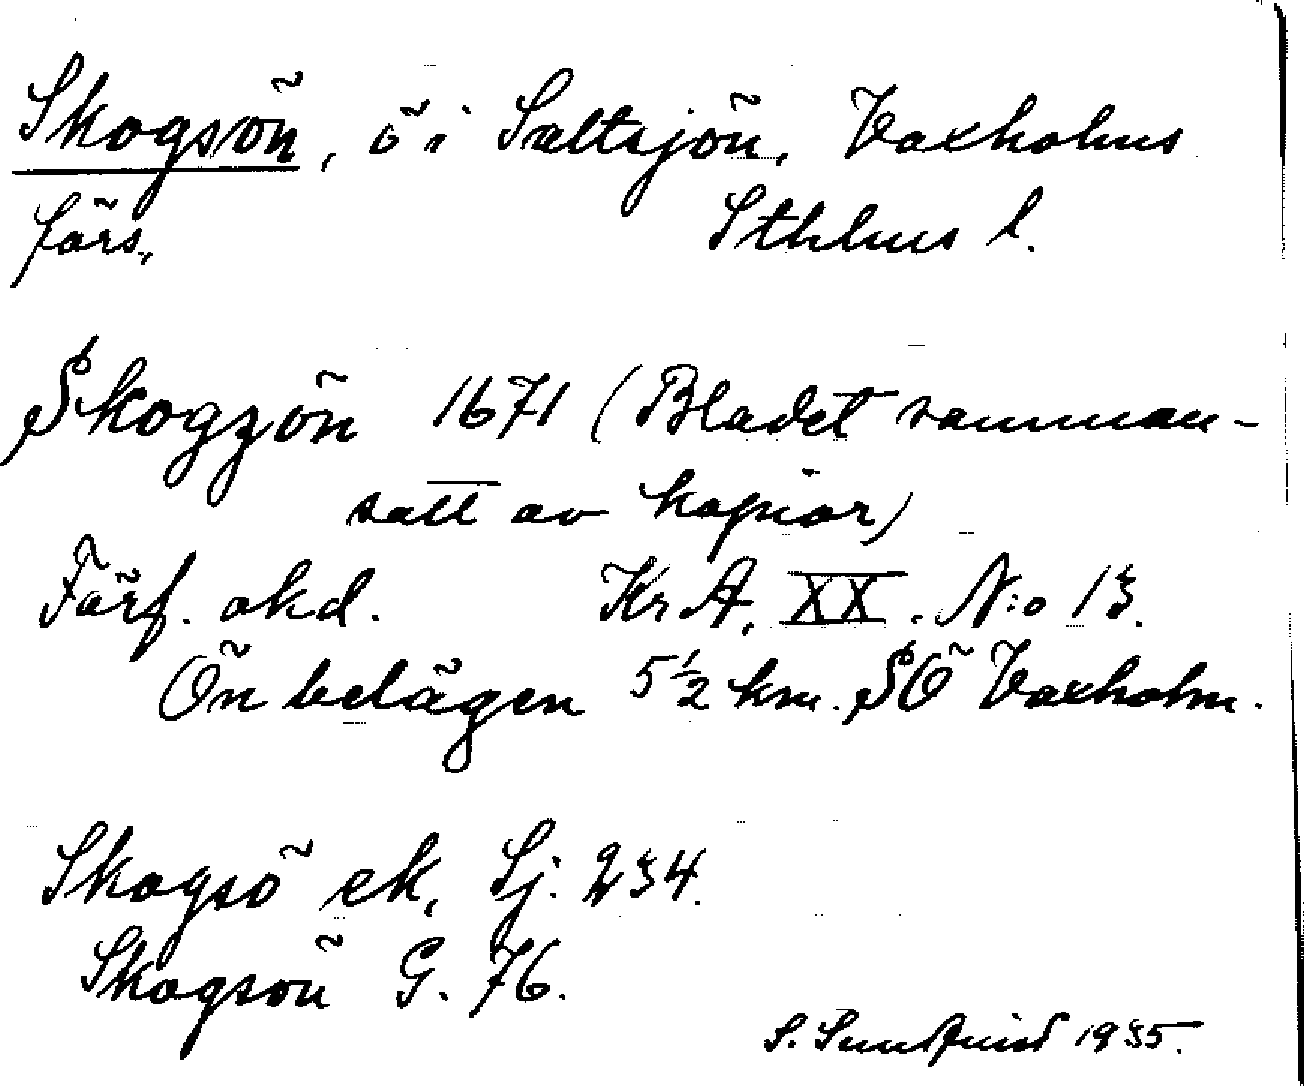 Skogsön, ö i Saltsjön, Vaxholms
förs. Sthlms l.
Skogzön 1671 (Bladet samman-
satt av kopior)
Förf. okd. Kr A. XX. N:o 13.
Ön belägen 5 1/2 km. SÖ Vaxholm.
Skogsö ek, Sj. 234.
Skogsön G. 76.
S. Sundquist 1935.